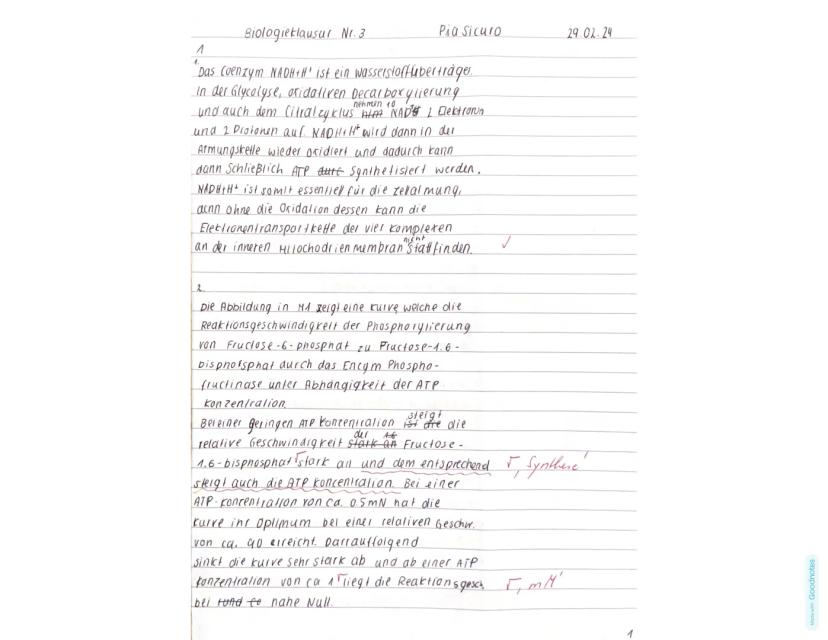 Biologieklausur Nr. 3 Pia Sicuro 29.02.24
1
1.
Das Coenzym NADH+H⁺ ist ein Wasserstoffüberträger.
In der Glycolyse, oxidativen Decarboxylierung
und auch dem Citratzyklus nehmen 10 NAD⁺ 2 Elektronen
und 2 Protonen auf. NADH+H⁺ wird dann in der
Atmungskette wieder oxidiert und dadurch kann
dann Schließlich ATP durc Synthetisiert werden.
NADH+H⁺ ist somit essentiell für die Zellatmung,
denn ohne die Oxidation dessen kann die
Elektronentransportkette der vier Komplexen
an der inneren Mitochodrienmembran nicht stattfinden. ✓
2.
Die Abbildung in M1 zeigt eine Kurve, welche die
Reaktionsgeschwindigkeit der Phosphorylierung
von Fructose-6-phosphat zu Fructose-1.6-
bisphosphat durch das Enzym Phospho-
fructinase unter Abhängigkeit der ATP
konzentration.
Bei einer geringen ATP Konzentration ist die steigt die
relative Geschwindigkeit stark an der Fructose-
1.6-bisphosphat stark an und dem entsprechend Γ, Synthese
steigt auch die ATP Koncentration. Bei einer
ATP-Koncentration von ca. 0.5mN hat die
Kurve ihr Optimum bei einer relativen Geschw.
von ca. 90 erreicht. Darrauffolgend
sinkt die Kurve sehr stark ab und ab einer ATP
Konzentration von ca 1 Γ liegt die Reaktionsgesch. Γ, mM
bei rund nahe Null.
1
Made with Goodnotes